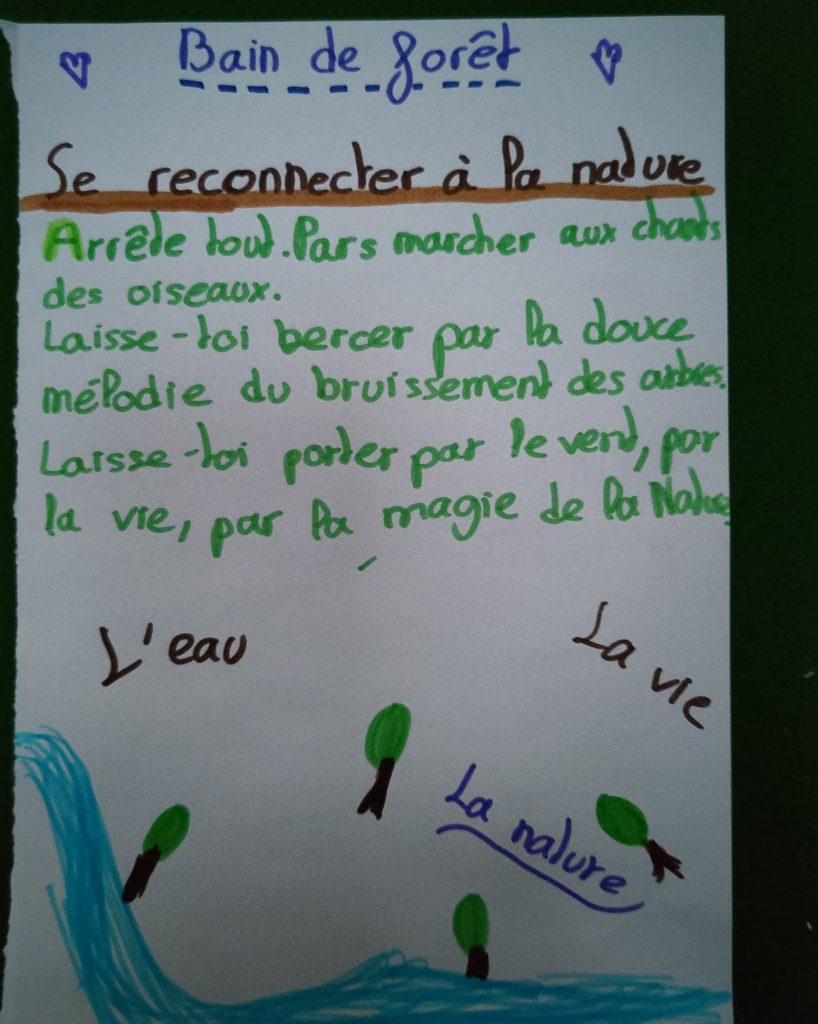 Bain de forêt
Se reconnecter à la nature
Arrête tout. Pars marcher aux chants
des oiseaux.
Laisse-toi bercer par la douce
mélodie du bruissement des arbres.
Laisse-toi porter par le vent, par
la vie, par la magie de la Nature
L'eau
La vie
La nature